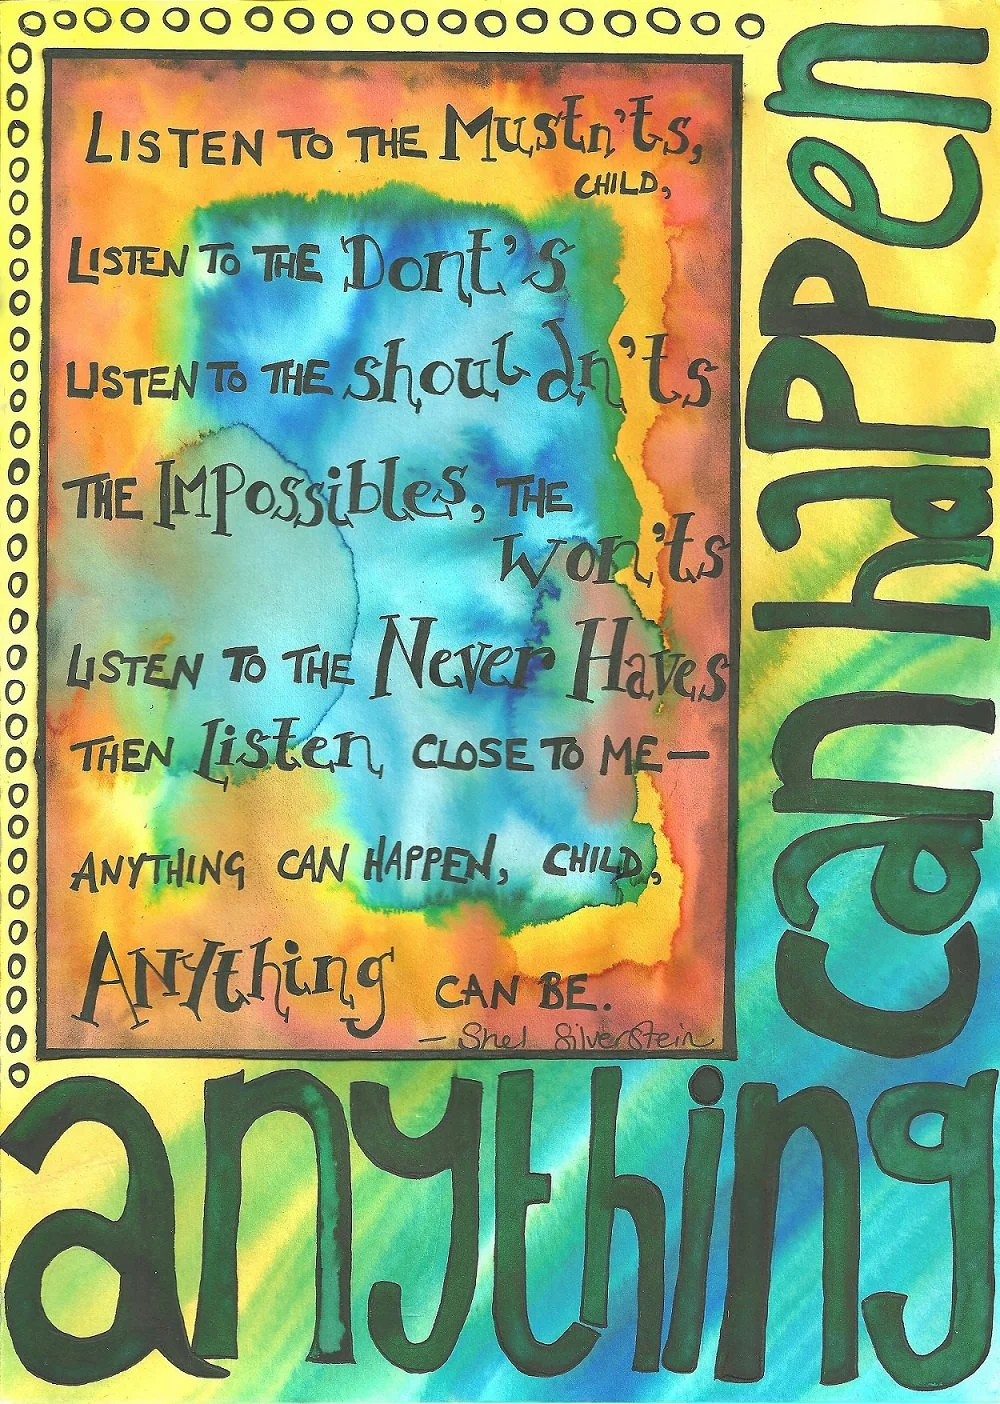 LISTEN TO THE Mustn'ts,
CHILD,
LISTEN TO THE Dont's
LISTEN TO THE shouldn'ts
THE IMPossibles, THE
won'ts
LISTEN TO THE Never Haves
THEN Listen CLOSE TO ME—
ANYTHING CAN HAPPEN, CHILD,
ANYthing CAN BE.
— Shel Silverstein
anything
can haPPen